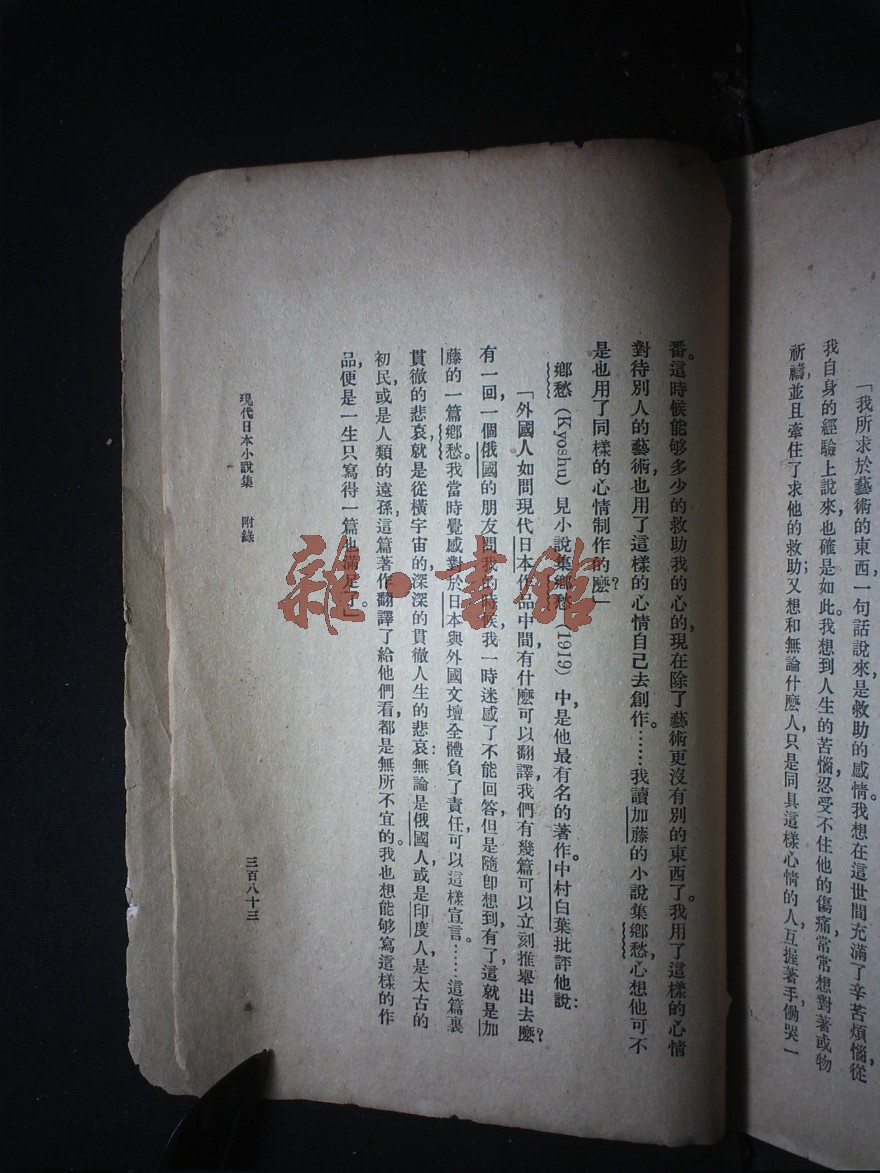 「我所求於藝術的東西,一句話說來,是救助的感情。我想在這世間充滿了辛苦煩惱,從
我自身的經驗上說來,也確是如此。我想到人生的苦惱,忍受不住他的傷痛,常常想對著或物
祈禱,並且牽住了求他的救助;又想和無論什麼人,只是同具這樣心情的人,互握著手,慟哭一
番。這時候能够多少的救助我的心的,現在除了藝術更沒有別的東西了。我用了這樣的心情
對待別人的藝術,也用了這樣的心情自己去創作。……我讀加藤的小說集鄉愁,心想他可不
是也用了同樣的心情制作的麼?」
鄉愁(Kyoshu)見小說集鄉愁(1919)中,是他最有名的著作。中村白葉批評他說:
「外國人如問現代日本作品中間有什麼可以翻譯,我們有幾篇可以立刻推舉出去麼?
有一回一個俄國的朋友問我的時候,我一時迷惑了不能回答,但是隨卽想到,有了,這就是加
藤的一篇鄉愁。我當時覺感對於日本與外國文壇全體負了責任,可以這樣宣言。……這篇裏
貫徹的悲哀,就是從橫宇宙的深深的貫徹人生的悲哀:無論是俄國人或是印度人,是太古的
初民或是人類的遠孫,這篇著作翻譯了給他們看,都是無所不宜的。我也想能够寫這樣的作
品,便是一生只寫得一篇也滿足了。」
現代日本小說集 附錄
三百八十三
雜·書館